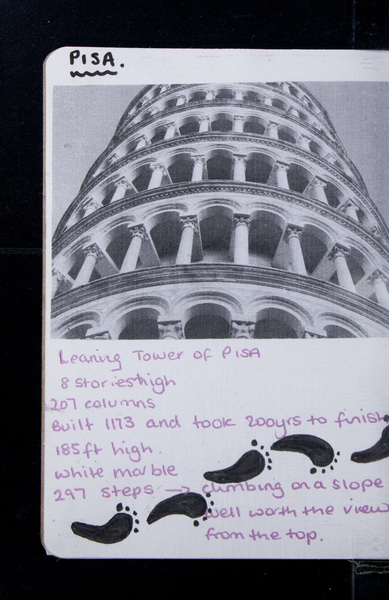 PISA.
Leaning Tower of PISA
8 stories high
207 columns
Built 1173 and took 200yrs to finish
185ft high.
white marble
297 steps → climbing on a slope
well worth the view
from the top.